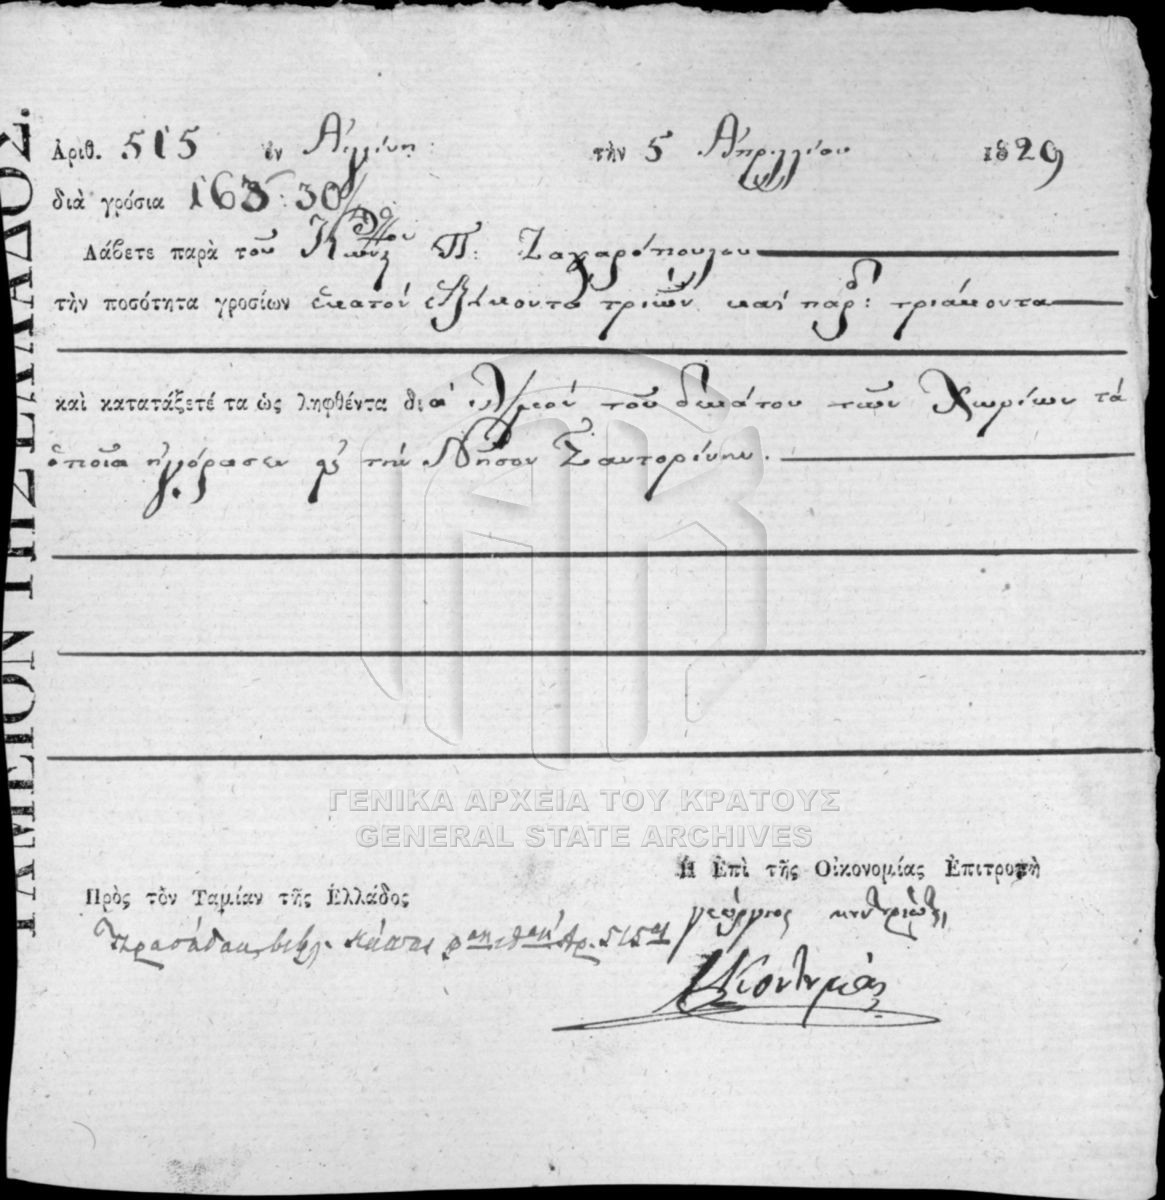 ΤΑΜΕΙΟΝ ΤΗΣ ΕΛΛΑΔΟΣ.
Ἀριθ. 515 ἐν Αἰγίνῃ τὴν 5 Ἀπριλλίου 1829
διὰ γρόσια 163:30/40
Λάβετε παρὰ τοῦ Π: Ζαχαρόπουλου
τὴν ποσότητα γροσίων ἑκατὸν ἑξήκοντα τριῶν καὶ παρ: τριάκοντα
καὶ κατατάξετέ τα ὡς ληφθέντα διὰ τοῦ δεκάτου τῶν Χωρίων τὰ
ὁποῖα ἠγόρασεν εἰς τὴν Νῆσον Σαντορίνην.
ΓΕΝΙΚΑ ΑΡΧΕΙΑ ΤΟΥ ΚΡΑΤΟΥΣ
GENERAL STATE ARCHIVES
Ἡ Ἐπὶ τῆς Οἰκονομίας Ἐπιτροπὴ
Πρὸς τὸν Ταμίαν τῆς Ἑλλάδος
γεώργιος
Ἀρ. 515
Κοντουμᾶς